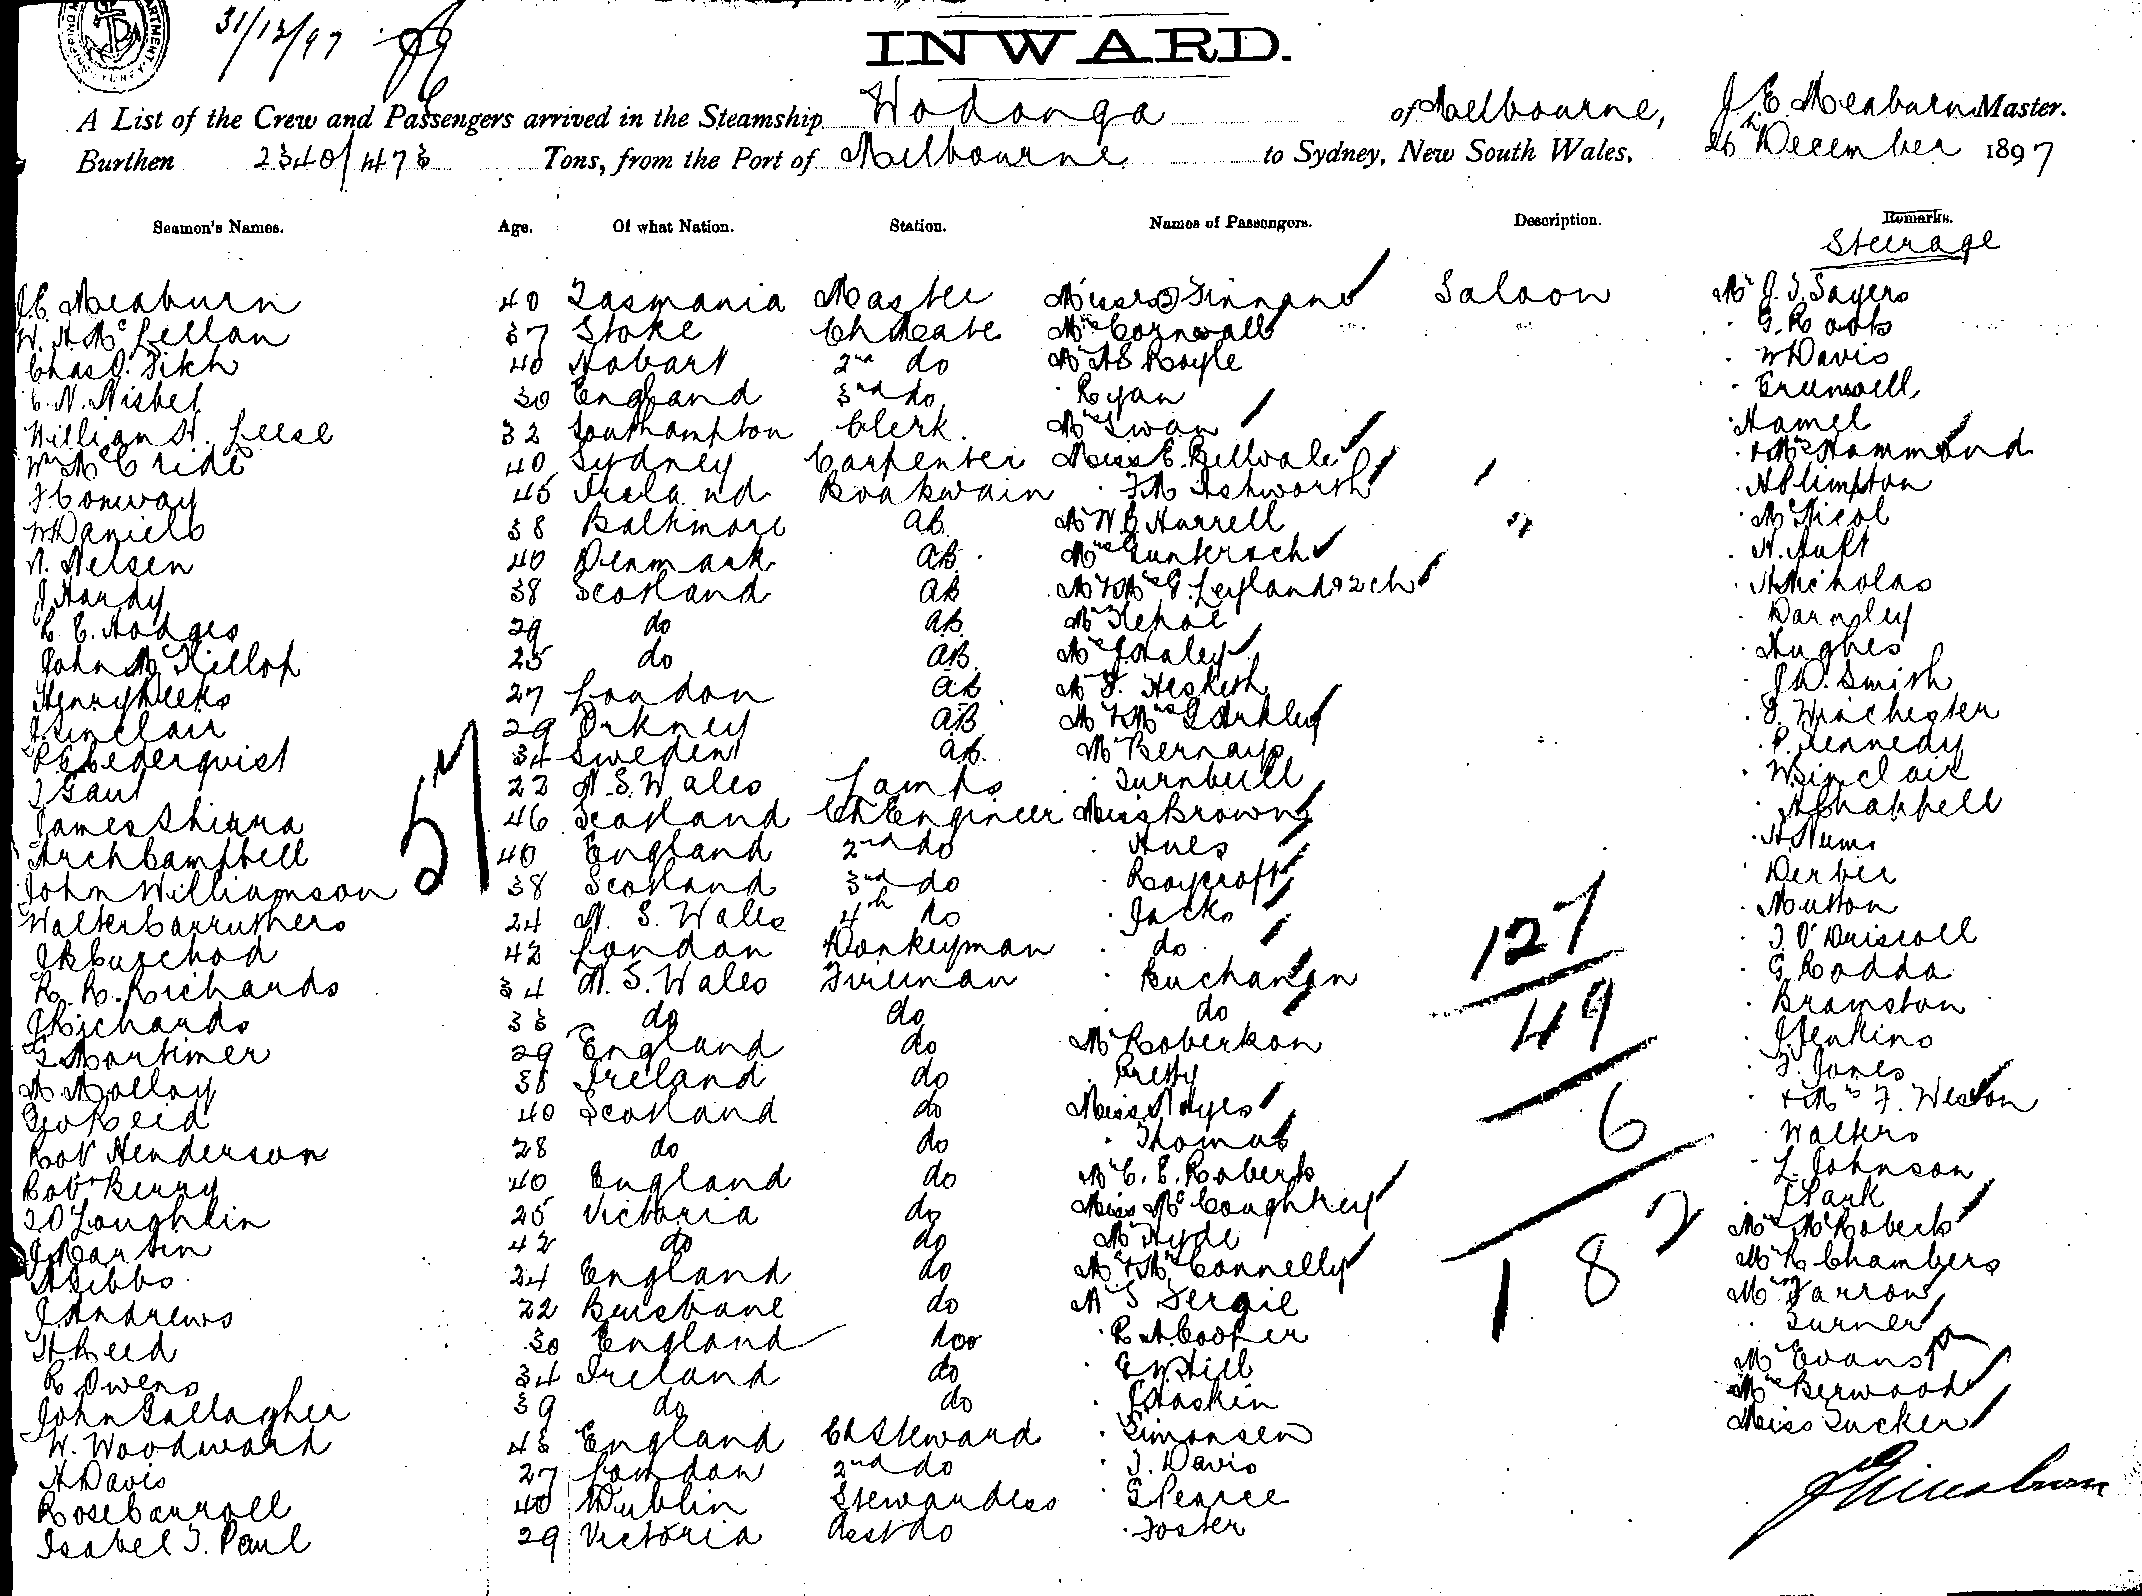 31/12/97
INWARD.
A List of the Crew and Passengers arrived in the Steamship Wodonga of Melbourne, J. C. Meaburn Master.
Burthen 2340/1473 Tons, from the Port of Melbourne to Sydney, New South Wales, 26th December 1897
Seamen's Names. Age. Of what Nation. Station. Names of Passengers. Description. Remarks.
Steerage
J. C. Meaburn 40 Tasmania Master Saloon Mr J. T. Sayers
W. H. McLellan 37 Stoke Ch Mate Mrs Cornwall G. Roots
Chas J. Fitch 40 Hobart 2nd do Mr A E Royle W Davis
C. N. Nisbet 30 England 3rd do Ryan
William H. Leese 32 Southampton Clerk. Mrs Swan Hamel
Wm McCride 40 Sydney Carpenter Miss E. Bellvale + Mrs Hammond
J Conway 45 Ireland Boatswain F M Ashworth H Plimpton
W Daniels 38 Baltimore AB. Mr W G Hurrell McNicol
N. Nelsen 40 Denmark AB. Mrs H. Huft
J Hardy 38 Scotland AB Mr & Mrs G. Leyland & 2 ch A Nicholas
C. E. Hodges 29 do AB. Mr Darnley
John McKillop 25 do AB. Mrs J Haley Hughes
Henry Weeks 27 London AB Mr F. Hesketh J W. Smith
J Sinclair 29 Orkney AB Mr & Mrs G Winchester
Cederquist 34 Sweden AB. Mr Bernays P. Kennedy
J Gaut 22 N. S. Wales Lamps Turnbull W Sinclair
James Shirra 46 Scotland Ch Engineer Miss Brown A Chappell
Arch Campbell 40 England 2nd do H Nums
John Williamson 38 Scotland 3rd do Roycroft Derber
Walter Carruthers 24 N. S. Wales 4th do Jacks Mutton
42 London Donkeyman do J. O'Driscoll
R. R. Richards 34 N. S. Wales Fireman Buchanan G Rodda
J Richards 33 do do do Bramston
G Mortimer 29 England do Mr Robertson J Jenkins
M Molloy 38 Ireland do Pretty F. Jones
Geo Reid 40 Scotland do Miss Noyes + Mrs F. Weston
Robt Henderson 28 do do Thomas Walters
Robt Berry 40 England do Mr C. E. Roberts L. Johnson
J O'Loughlin 25 Victoria do Miss McCoughtrey J Park
J Martin 42 do do Mr Hyde Mrs McRoberts
A Gibbs 24 England do Mr & Mrs Connelly Mr R Chambers
J Andrews 22 Brisbane do Mr S Fergie Mrs Farrow
H Reed 30 England do R A Cooper Turner
R Owens 34 Ireland do E W Hill Mrs Evans
John Gallagher 39 do do J Haskin Mrs Berwood
W. Woodward 43 England Ch Steward Simonsen Miss Tucker
A Davis 27 London 2nd do J. Davis
Rose Carroll 40 Dublin Stewardess G Pearce
Isabel J. Paul 29 Victoria Asst do Foster
57
127
49
6
182